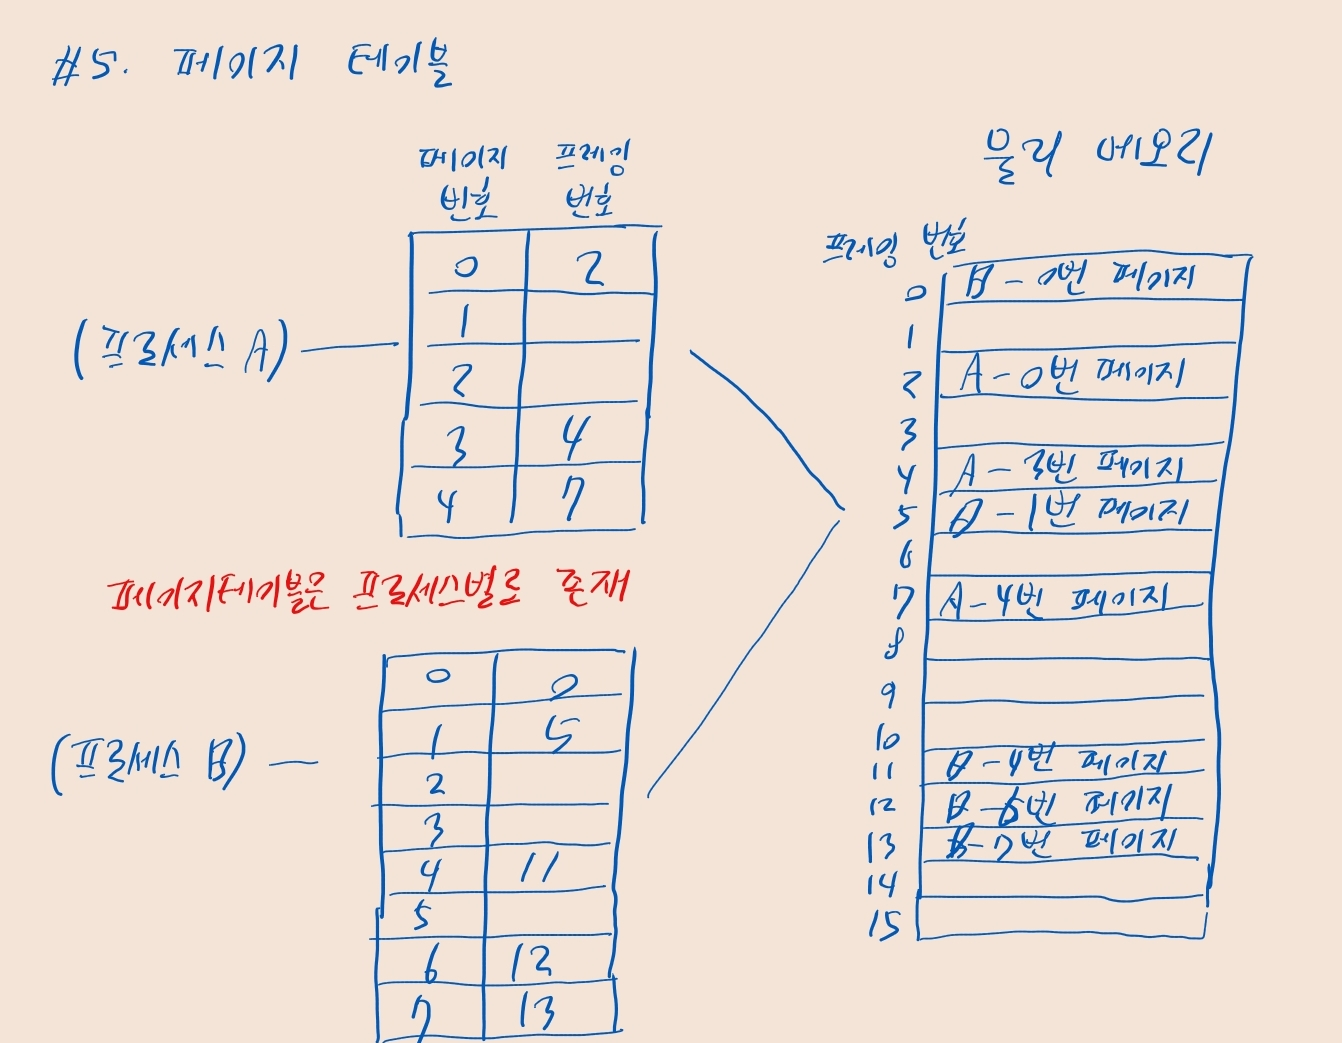 #5. 페이지 테이블
페이지 프레임
번호 번호
0 2
1
2
3 4
4 7
(프로세스 A)
페이지테이블은 프로세스별로 존재
(프로세스 B)
0 0
1 5
2
3
4 11
5
6 12
7 13
물리 메모리
프레임 번호
0 B-0번 페이지
1
2 A-0번 페이지
3
4 A-3번 페이지
5 B-1번 페이지
6
7 A-4번 페이지
8
9
10
11 B-4번 페이지
12 B-6번 페이지
13 B-7번 페이지
14
15